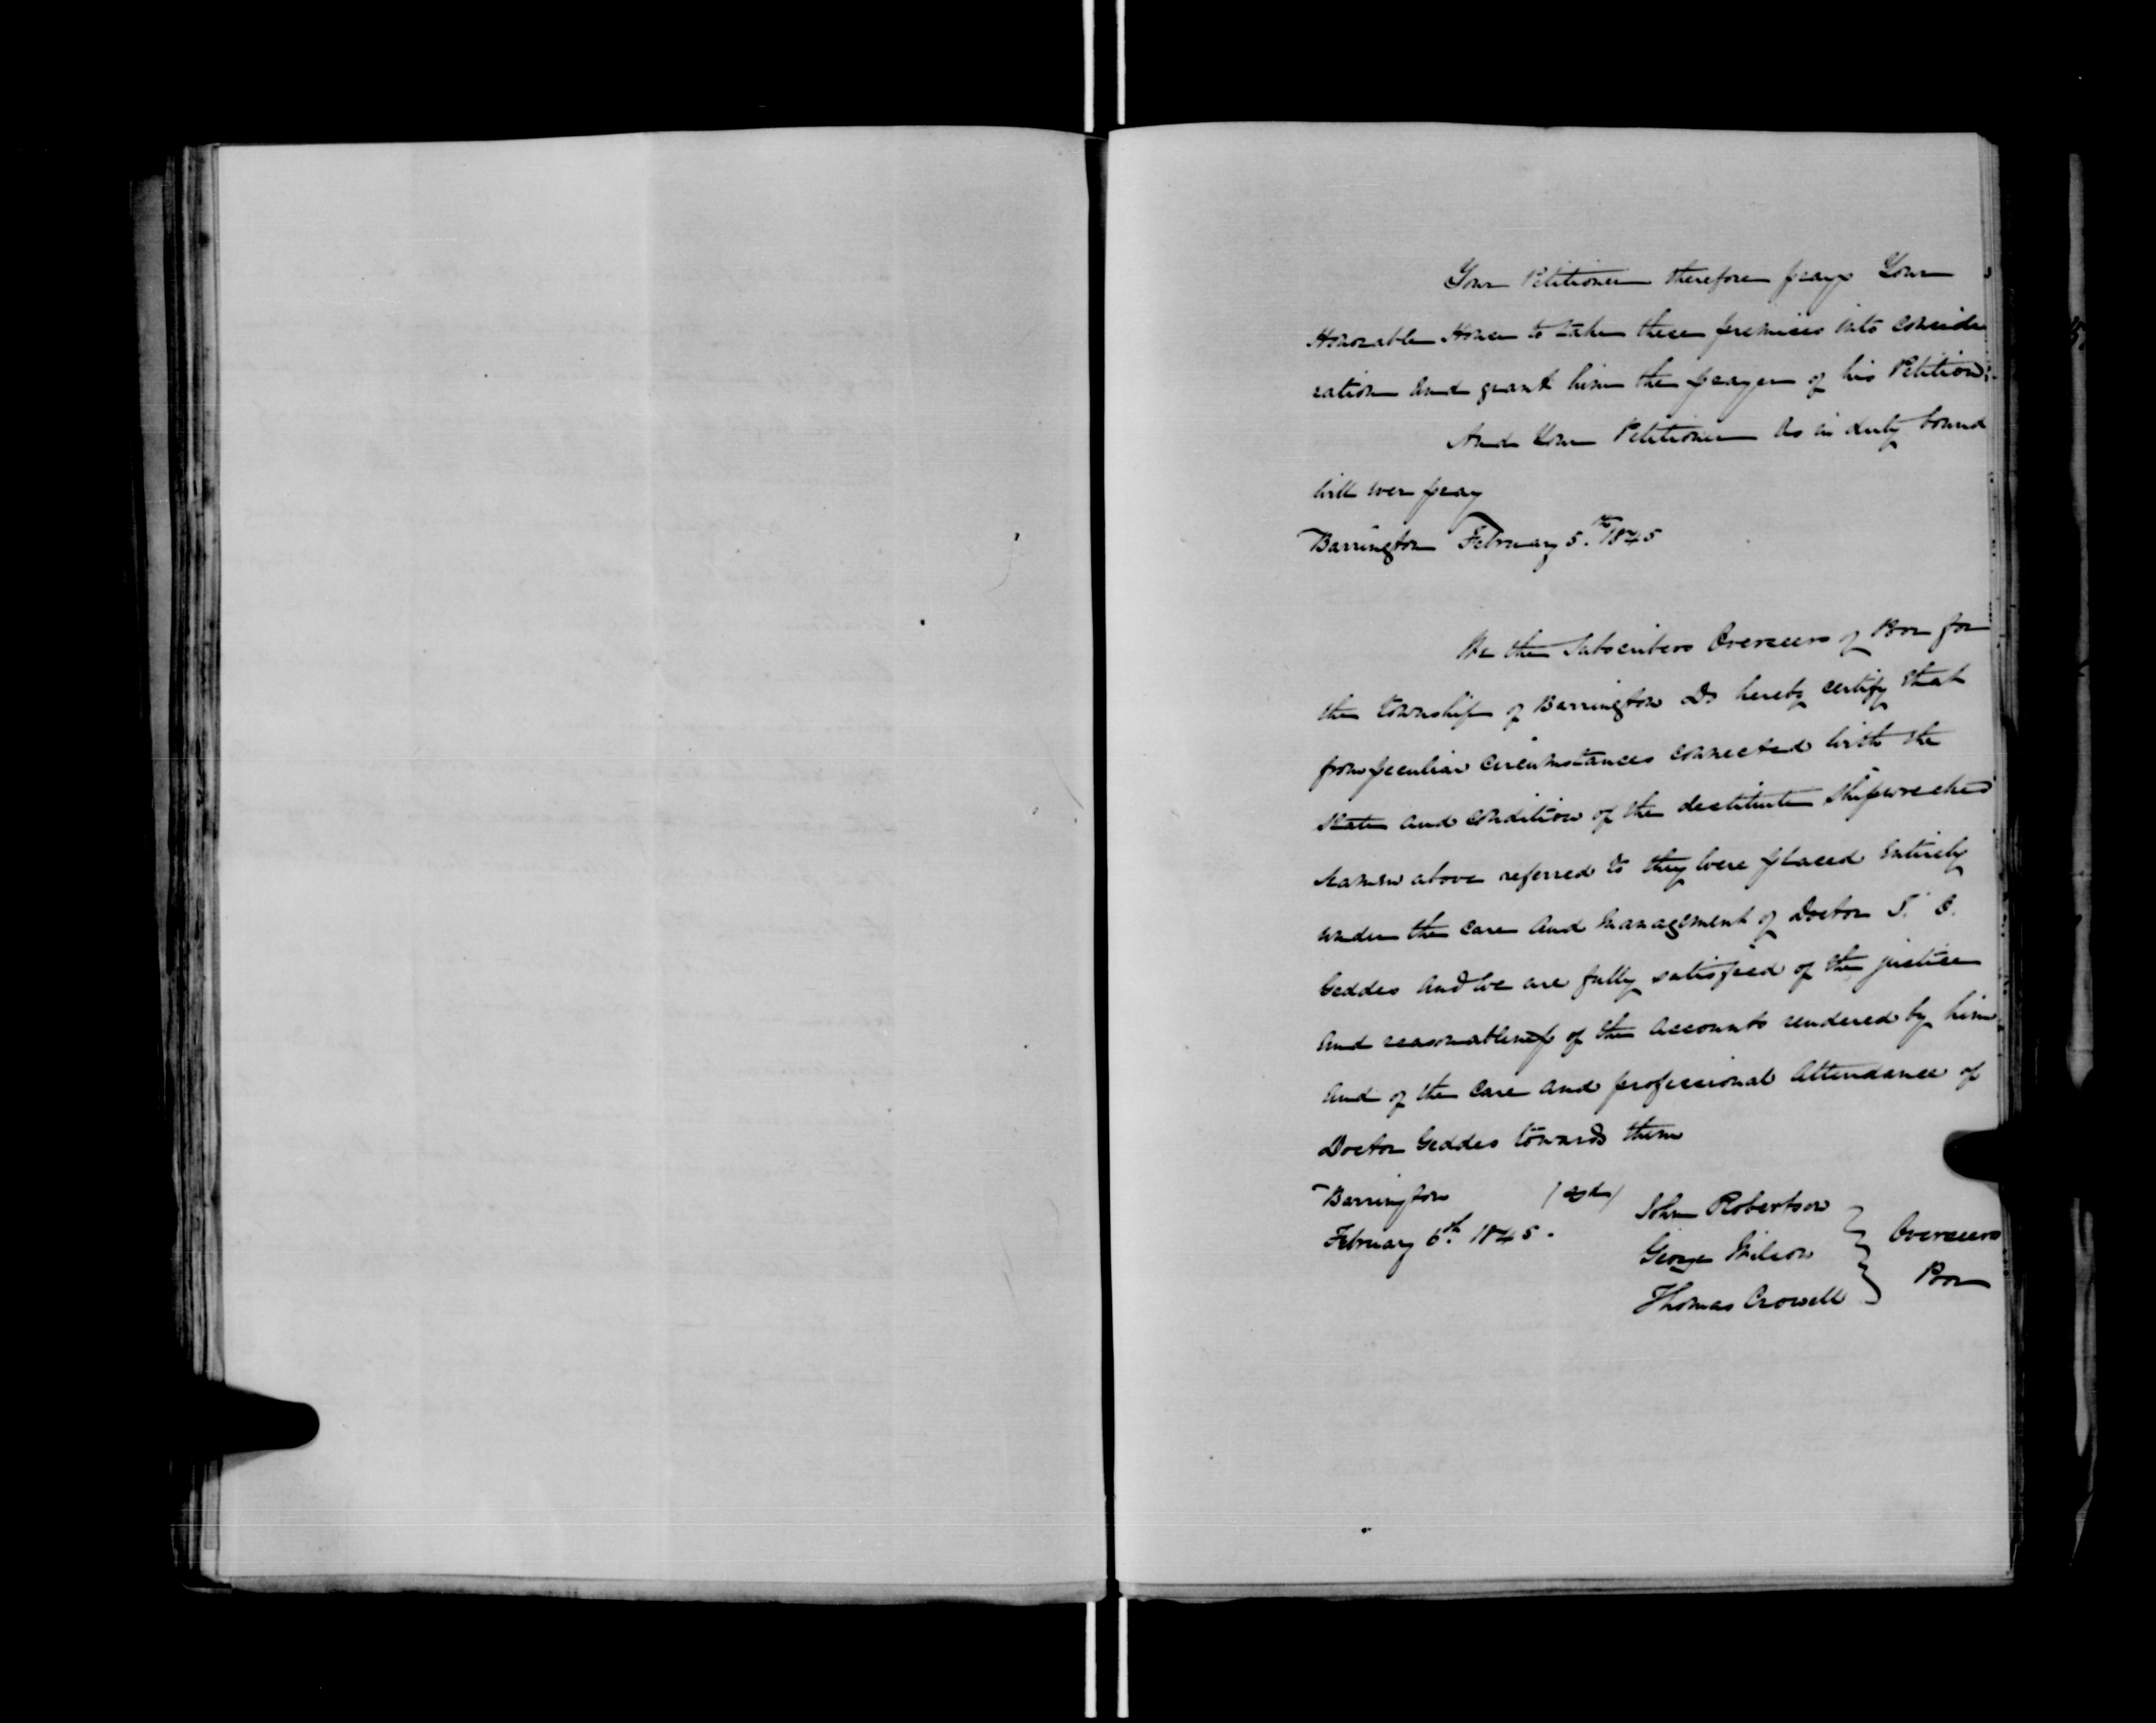 Your Petitioner therefore prays Your
Honorable House to take these premises into conside
ration and grant him the prayer of his Petition
And Your Petitioner as in duty bound
will ever pray
Barrington February 5th 1845
We the Subscribers Overseers of Poor for
the township of Barrington Do hereby certify that
from peculiar circumstances connected with the
state and condition of the destitute Shipwrecked
seamen above referred to they were placed entirely
under the care and management of Doctor T. O.
Geddes and we are fully satisfied of the justice
and reasonableness of the accounts rendered by him
and of the care and professional attendance of
Doctor Geddes towards them
Barrington (sgd) John Robertson
February 6th 1845. George Wilson Overseers
Thomas Crowell Poor